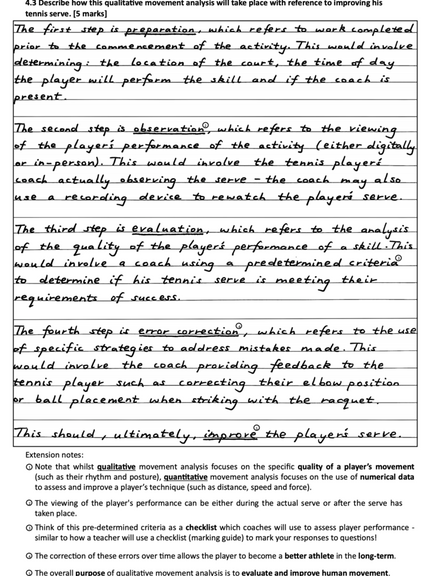 4.3 Describe how this qualitative movement analysis will take place with reference to improving his
tennis serve. [5 marks]
The first step is preparation, which refers to work completed
prior to the commencement of the activity. This would involve
determining: the location of the court, the time of day
the player will perform the skill and if the coach is
present.
The second step is observation②, which refers to the viewing
of the player's performance of the activity (either digitally
or in-person). This would involve the tennis player's
coach actually observing the serve - the coach may also
use a recording device to rewatch the player's serve.
The third step is evaluation, which refers to the analysis
of the quality of the player's performance of a skill. This
would involve a coach using a predetermined criteria③
to determine if his tennis serve is meeting their
requirements of success.
The fourth step is error correction④, which refers to the use
of specific strategies to address mistakes made. This
would involve the coach providing feedback to the
tennis player such as correcting their elbow position
or ball placement when striking with the racquet.
This should, ultimately, improve⑤ the player's serve.
Extension notes:
① Note that whilst qualitative movement analysis focuses on the specific quality of a player's movement
(such as their rhythm and posture), quantitative movement analysis focuses on the use of numerical data
to assess and improve a player's technique (such as distance, speed and force).
② The viewing of the player's performance can be either during the actual serve or after the serve has
taken place.
③ Think of this pre-determined criteria as a checklist which coaches will use to assess player performance -
similar to how a teacher will use a checklist (marking guide) to mark your responses to questions!
④ The correction of these errors over time allows the player to become a better athlete in the long-term.
⑤ The overall purpose of qualitative movement analysis is to evaluate and improve human movement.